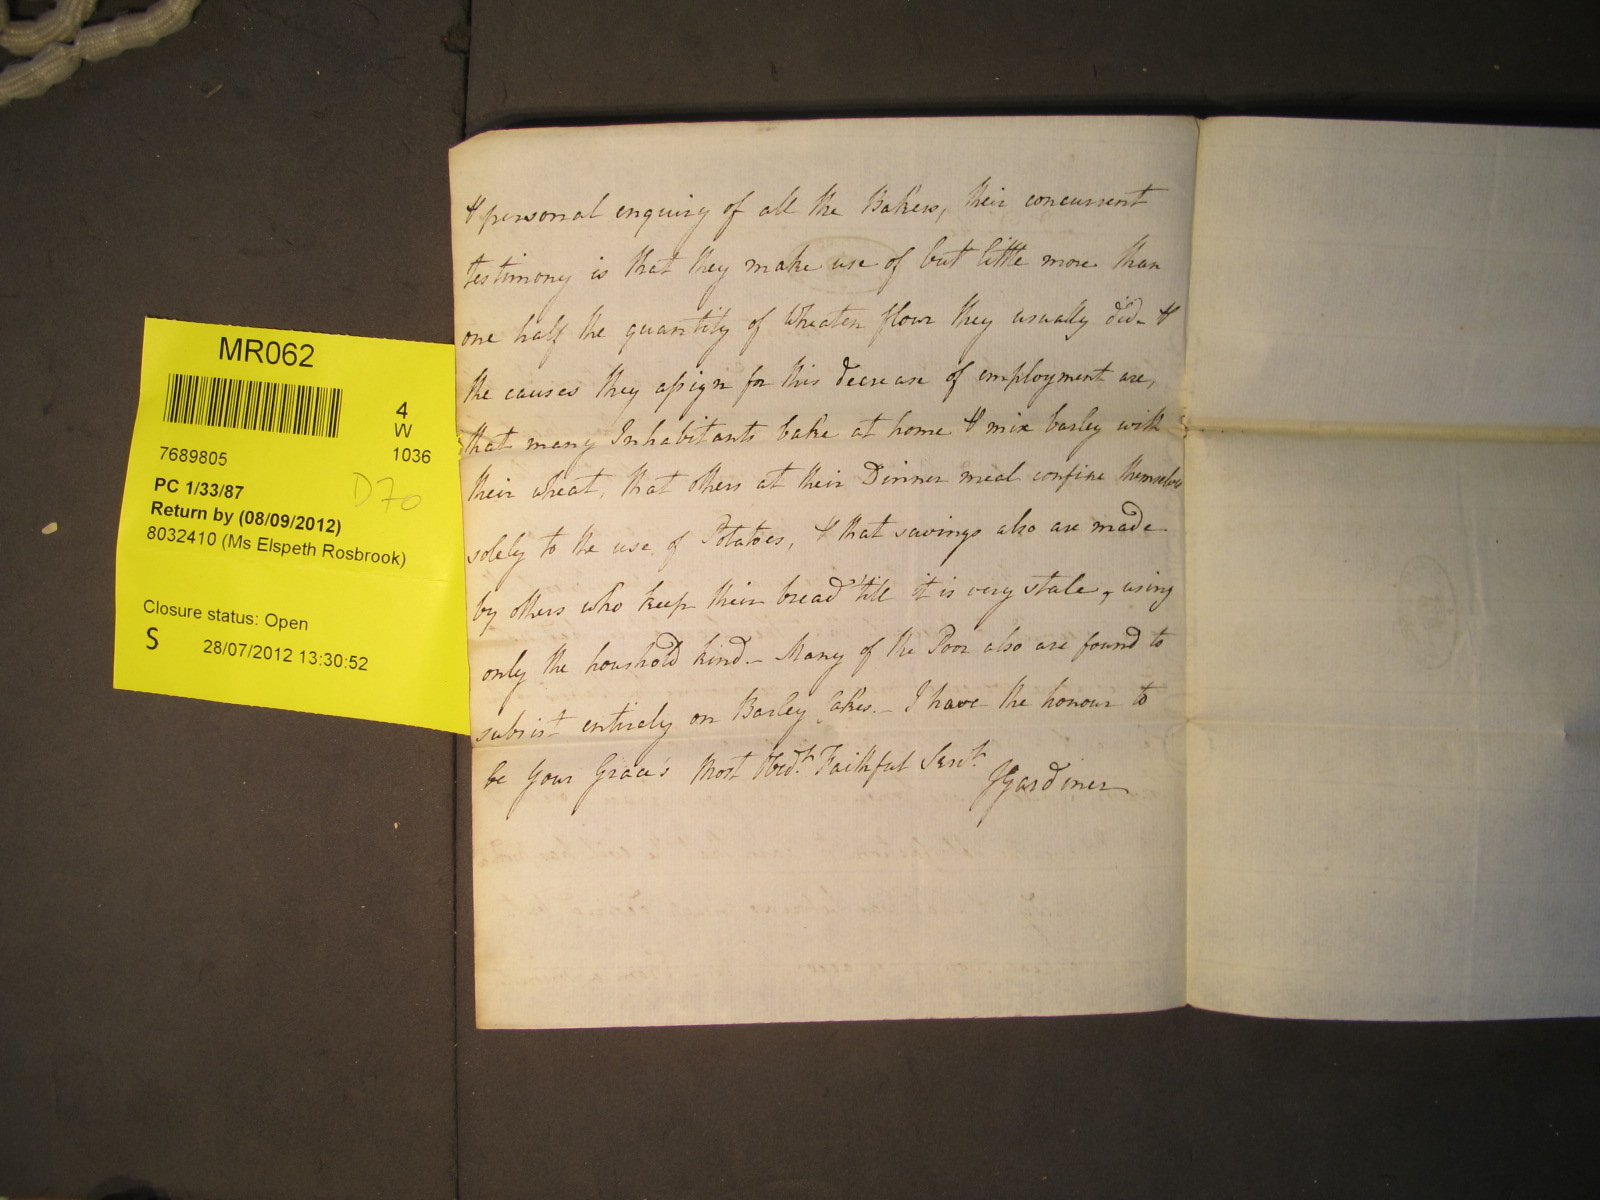 MR062
4
W
1036
7689805
PC 1/33/87
D70
Return by (08/09/2012)
8032410 (Ms Elspeth Rosbrook)
Closure status: Open
S
28/07/2012 13:30:52
& personal enquiry of all the Bakers, their concurrent
testimony is that they make use of but little more than
one half the quantity of Wheaten flour they usually did - &
the causes they assign for this decrease of employment are,
that many Inhabitants bake at home & mix barley with
their wheat, that others at their Dinner meal confine themselves
solely to the use of Potatoes, & that savings also are made
by others who keep their bread 'till it is very stale, using
only the houshold kind. - Many of the Poor also are found to
subsist entirely on Barley Cakes. - I have the honour to
be Your Grace's Most Obedt. Faithful Servt.
JGardiner